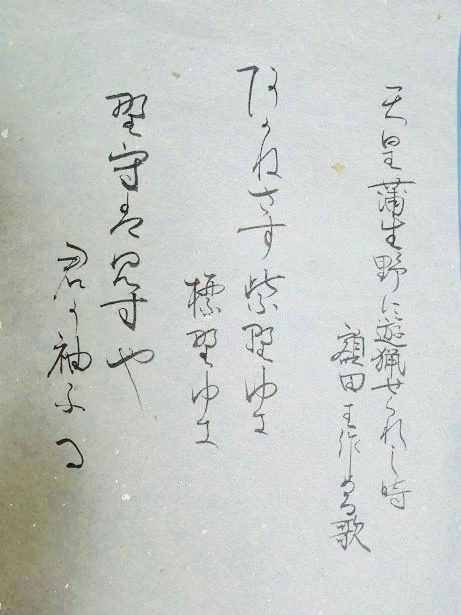 天皇蒲生野に遊猟せられし時
額田王作める歌
阿かねさす紫野ゆき
標野ゆき
野守は見ずや
君が袖ふる